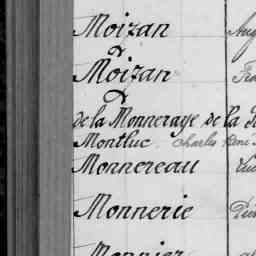 Moizan Aug
Moizan Fra
de la Monneraye de la
Montluc Charles René
Monnereau
Monnerie
Monnier